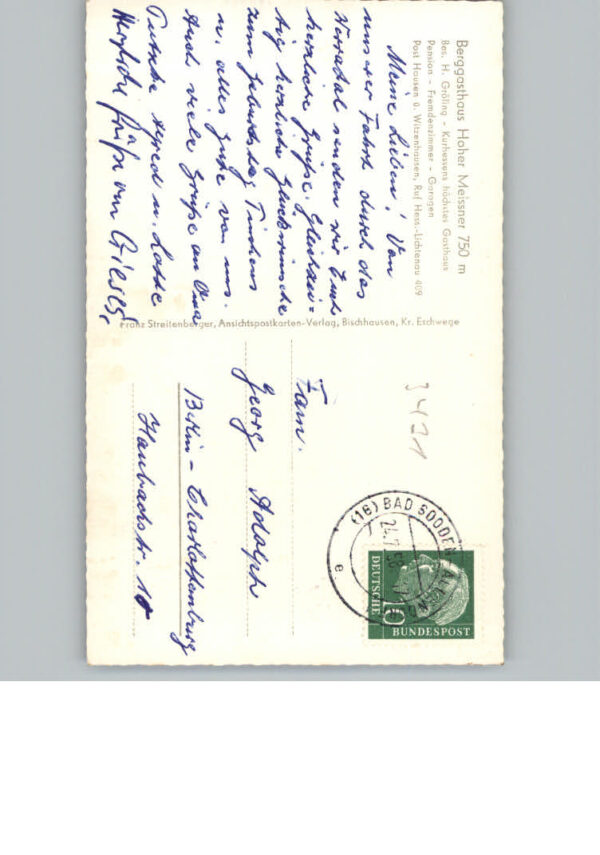 Berggasthaus Hoher Meissner 750 m
Bes. H. Gröling - Kurhessens höchstes Gasthaus
Pension - Fremdenzimmer - Garagen
Post Hausen ü. Witzenhausen, Ruf Hess.-Lichtenau 409
Meine Lieben! Von
unserer Fahrt durch das
Werratal senden wir Euch
herzliche Grüße. Gleichzei-
tig herzliche Glückwünsche
zum Geburtstag
u. alles Gute von uns.
Auch viele Grüße an Oma
u. Lotte
Herzliche Grüße von
Franz Streitenberger, Ansichtspostkarten-Verlag, Bischhausen, Kr. Eschwege
3421
(16) BAD SOODEN-ALLENDORF
24.7.58
e
DEUTSCHE
BUNDESPOST
10
Fam.
Georg Adolph
Berlin - Charlottenburg
Haubachstr. 10